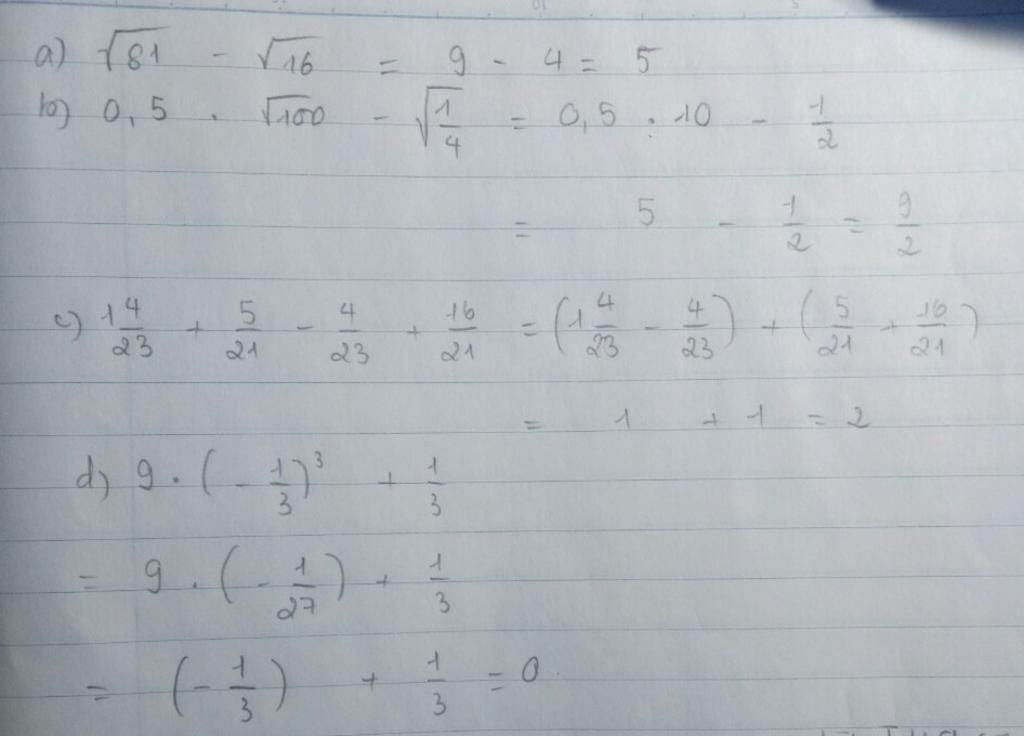 a) √81 - √16 = 9 - 4 = 5
b) 0,5 . √100 - √(1/4) = 0,5 . 10 - 1/2
= 5 - 1/2 = 9/2
c) 1 4/23 + 5/21 - 4/23 + 16/21 = (1 4/23 - 4/23) + (5/21 + 16/21)
= 1 + 1 = 2
d) 9 . (- 1/3)³ + 1/3
= 9 . (- 1/27) + 1/3
= (- 1/3) + 1/3 = 0